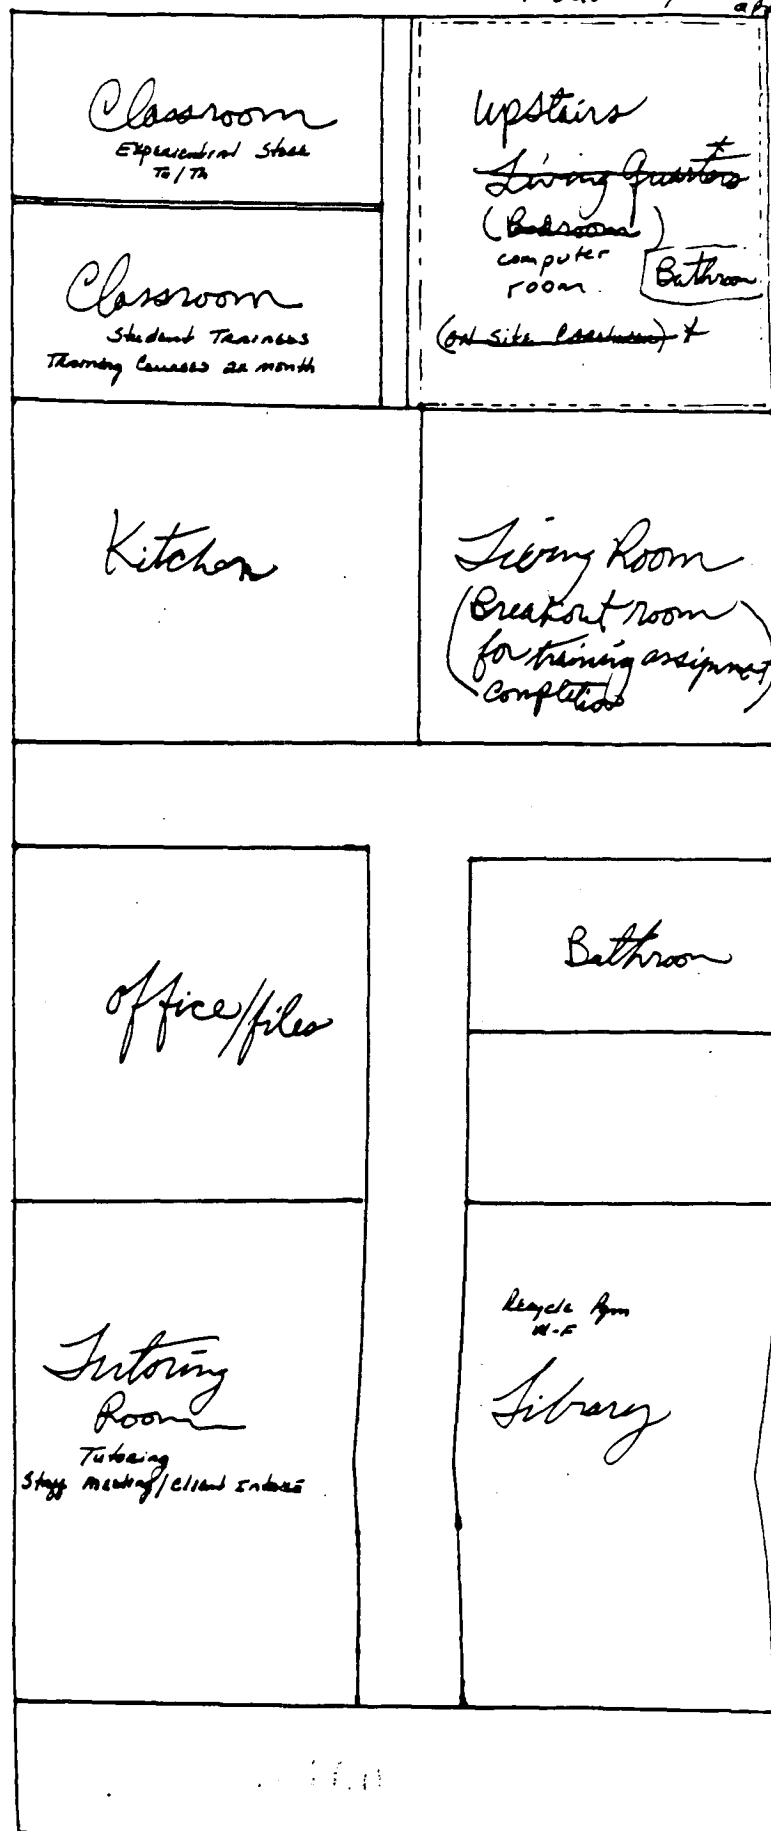 Classroom
Experiential
Tu/Th
Classroom
Student Trainees
Training Courses 2x month
Upstairs
Living Quarters *
(Bedroom)
computer
room
Bathroom
(on site
Kitchen
Living Room
(Breakout room
for training assignment
completion)
office/files
Bathroom
Tutoring
Room
Tutoring
Staff Meeting/Client Intake
Recycle Pgm
M-F
Library